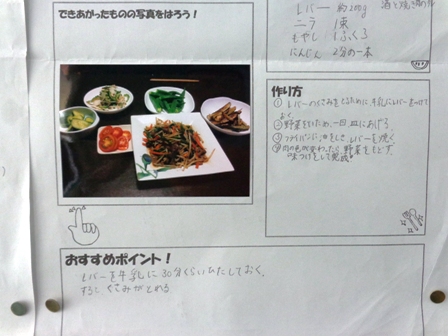 できあがったものの写真をはろう！
レバー 約200g
ニラ 1束
もやし 1ふくろ
にんじん 2分の1本
作り方
① レバーのくさみをとるために、牛乳にレバーをつけて
おく。
② 野菜をいため、一回、皿にあげる。
③ フライパンに油をしき、レバーを焼く
④ 肉の色が変わったら、野菜をもどす、
味つけをして完成
おすすめポイント！
レバーを牛乳に30分くらいひたしておく、
すると くさみがとれる